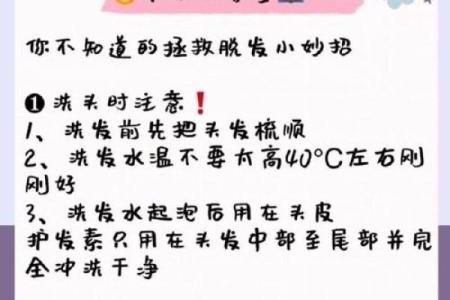 你不知道的拯救脱发小妙招
❶ 洗头时注意❗
1、洗发前先把头发梳顺
2、洗发水温不要太高40°C左右刚
刚好
3、洗发水起泡后用在头皮
护发素只用在头发中部至尾部并完
全冲洗干净